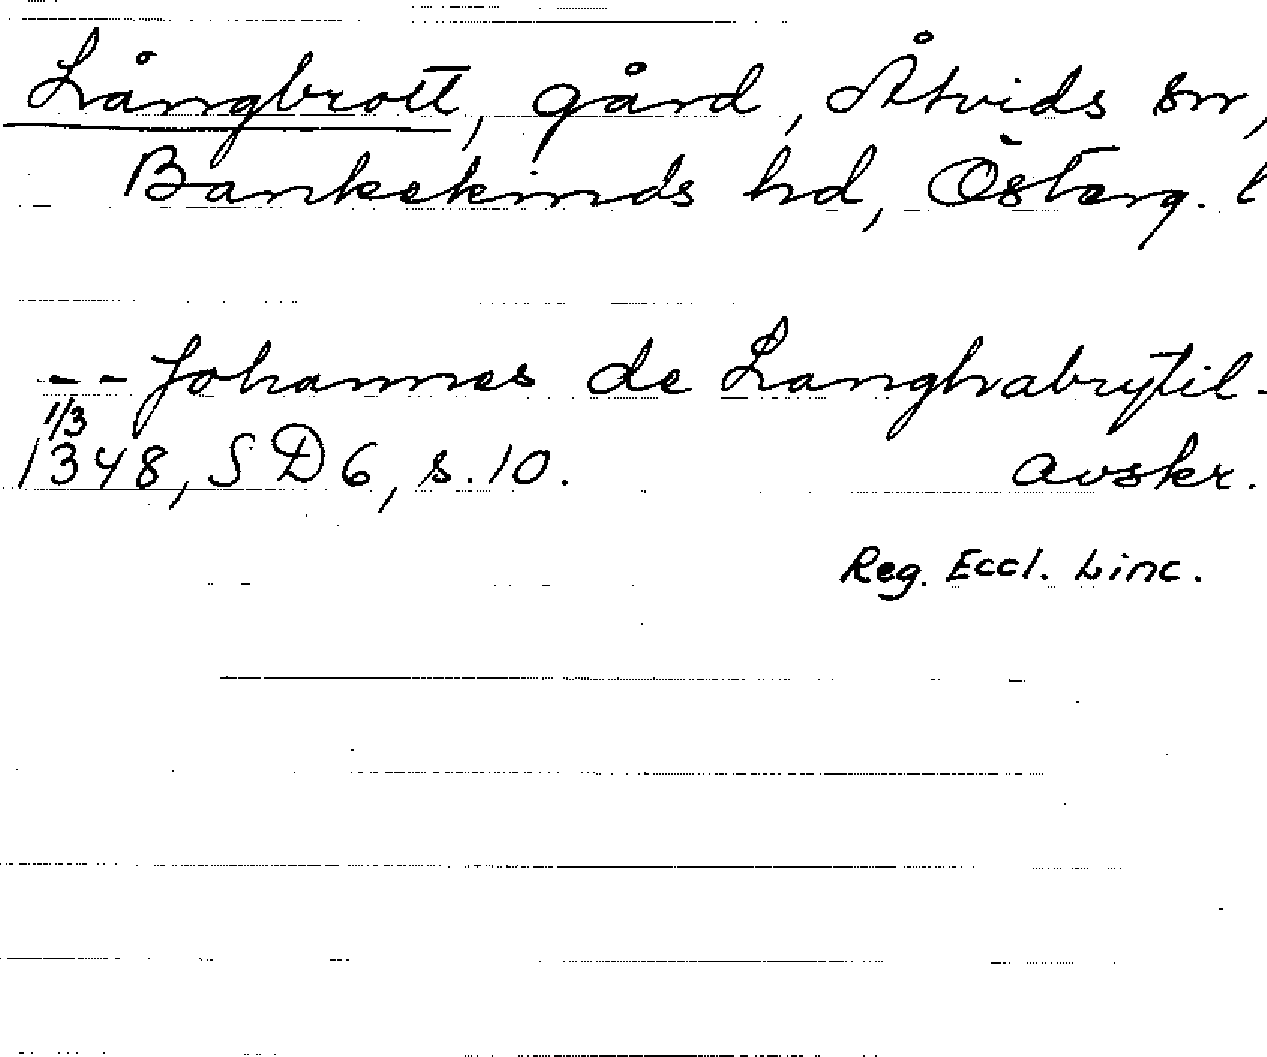 Långbrott, gård, Åtvids sn,
Bankekinds hd, Österg. l
-- Johannes de Langhabrytil.
1/3
1348, SD 6, s. 10. avskr.
Reg. Eccl. Linc.